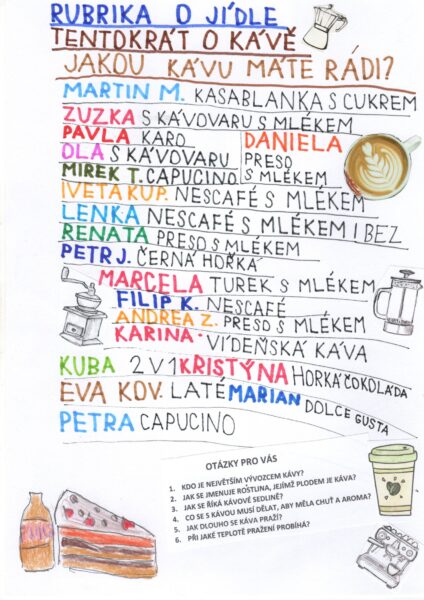 RUBRIKA O JÍDLE
TENTOKRÁT O KÁVĚ
JAKOU KÁVU MÁTE RÁDI?
MARTIN M. KASABLANKA S CUKREM
ZUZKA S KÁVOVARU S MLÉKEM
PAVLA KARO
OLA S KÁVOVARU
MIREK T. CAPUCINO
DANIELA
PRESO
S MLÉKEM
IVETA KUP. NESCAFÉ S MLÉKEM
LENKA NESCAFÉ S MLÉKEM I BEZ
RENATA PRESO S MLÉKEM
PETR J. ČERNÁ HOŘKÁ
MARCELA TUREK S MLÉKEM
FILIP K. NESCAFÉ
ANDREA Z. PRESO S MLÉKEM
KARINA. VÍDEŇSKÁ KÁVA
KUBA 2 V 1 KRISTÝNA HORKÁ ČOKOLÁDA
EVA KOV. LATÉ MARIAN DOLCE GUSTA
PETRA CAPUCINO
OTÁZKY PRO VÁS
1. KDO JE NEJVĚTŠÍM VÝVOZCEM KÁVY?
2. JAK SE JMENUJE ROSTLINA, JEJÍMŽ PLODEM JE KÁVA?
3. JAK SE ŘÍKÁ KÁVOVÉ SEDLINĚ?
4. CO SE S KÁVOU MUSÍ DĚLAT, ABY MĚLA CHUŤ A AROMA?
5. JAK DLOUHO SE KÁVA PRAŽÍ?
6. PŘI JAKÉ TEPLOTĚ PRAŽENÍ PROBÍHÁ?